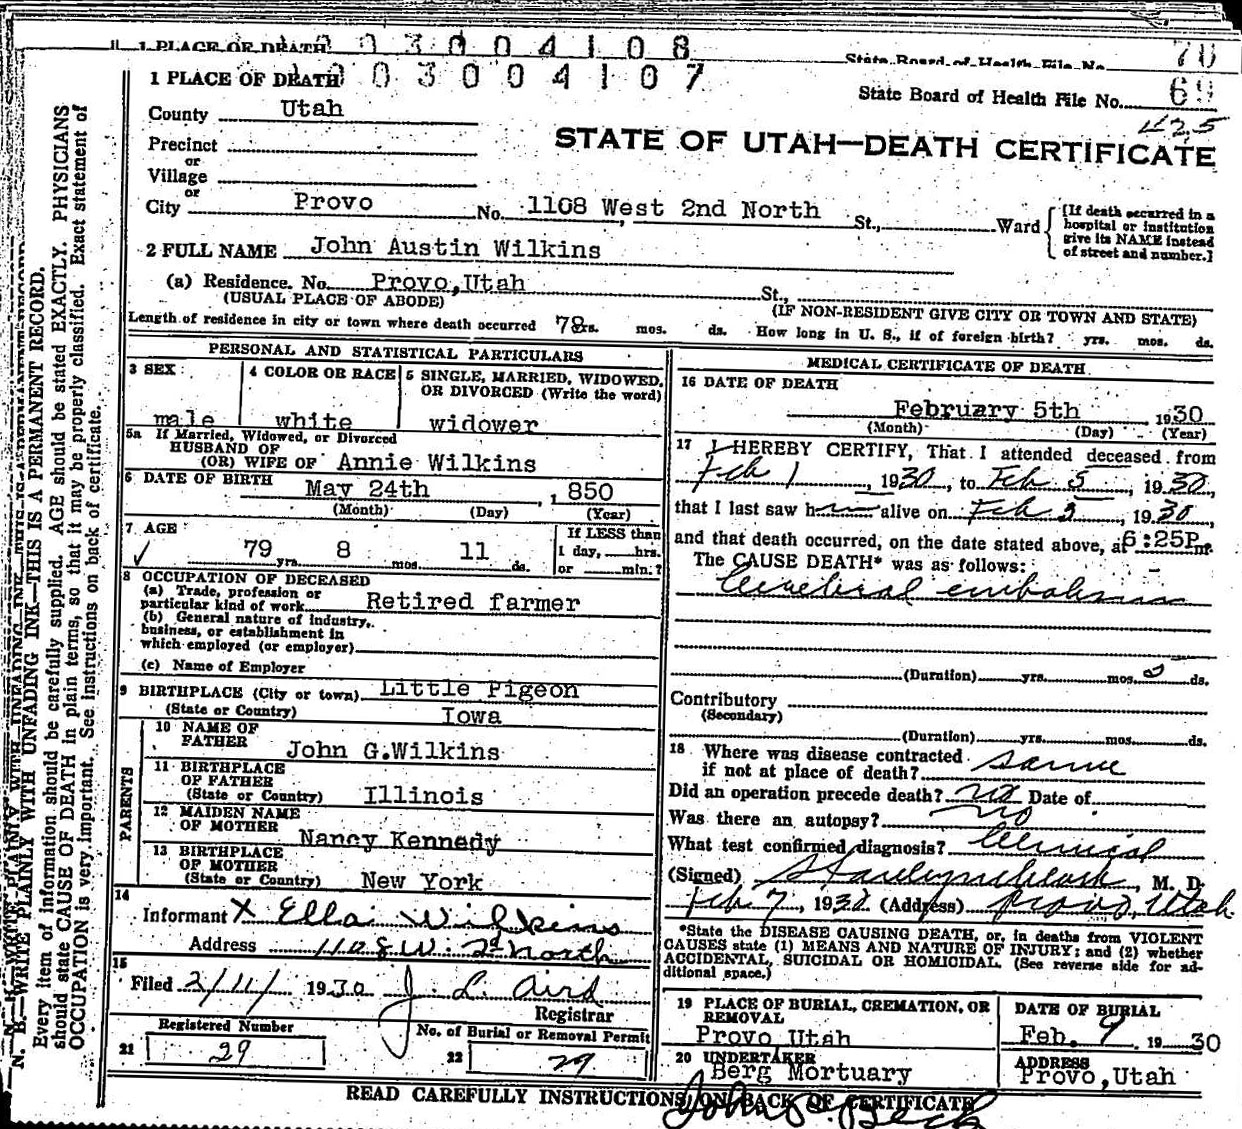 1 PLACE OF DEATH 03004108
State Board of Health File No. 70
1 PLACE OF DEATH 03004107
State Board of Health File No. 69
425
County Utah
STATE OF UTAH—DEATH CERTIFICATE
Precinct
or
Village
or
City Provo No. 1108 West 2nd North St., Ward
[If death occurred in a hospital or institution give its NAME instead of street and number.]
2 FULL NAME John Austin Wilkins
(a) Residence. No. Provo, Utah St.,
(USUAL PLACE OF ABODE) (IF NON-RESIDENT GIVE CITY OR TOWN AND STATE)
Length of residence in city or town where death occurred 78 yrs. mos. ds. How long in U. S., if of foreign birth? yrs. mos. ds.
PERSONAL AND STATISTICAL PARTICULARS
3 SEX male
4 COLOR OR RACE white
5 SINGLE, MARRIED, WIDOWED, OR DIVORCED (Write the word) widower
5a If Married, Widowed, or Divorced
HUSBAND OF
(OR) WIFE OF Annie Wilkins
6 DATE OF BIRTH May 24th, 1850
(Month) (Day) (Year)
7 AGE
79 yrs. 8 mos. 11 ds.
If LESS than
1 day, hrs.
or min.?
8 OCCUPATION OF DECEASED
(a) Trade, profession or
particular kind of work Retired farmer
(b) General nature of industry,
business, or establishment in
which employed (or employer)
(c) Name of Employer
9 BIRTHPLACE (City or town) Little Pigeon
(State or Country) Iowa
PARENTS
10 NAME OF
FATHER John G. Wilkins
11 BIRTHPLACE
OF FATHER
(State or Country) Illinois
12 MAIDEN NAME
OF MOTHER Nancy Kennedy
13 BIRTHPLACE
OF MOTHER
(State or Country) New York
14
Informant X Ella Wilkins
Address 1108 W. 2d North
15
Filed 2/11/ 1930 J. L. Aird
Registrar
Registered Number
21 29
No. of Burial or Removal Permit
22 29
MEDICAL CERTIFICATE OF DEATH
16 DATE OF DEATH
February 5th 1930
(Month) (Day) (Year)
17 I HEREBY CERTIFY, That I attended deceased from
Feb 1, 1930, to Feb 5, 1930,
that I last saw h alive on Feb 5, 1930,
and that death occurred, on the date stated above, at 6:25P m.
The CAUSE DEATH* was as follows:
Cerebral embolism
(Duration) yrs. mos. 5 ds.
Contributory
(Secondary)
(Duration) yrs. mos. ds.
18 Where was disease contracted
if not at place of death? same
Did an operation precede death? no Date of
Was there an autopsy? no
What test confirmed diagnosis? Clinical
(Signed) M. D.
Feb 7, 1930 (Address) Provo, Utah
*State the DISEASE CAUSING DEATH, or, in deaths from VIOLENT
CAUSES state (1) MEANS AND NATURE OF INJURY; and (2) whether
ACCIDENTAL, SUICIDAL OR HOMICIDAL. (See reverse side for ad-
ditional space.)
19 PLACE OF BURIAL, CREMATION, OR
REMOVAL
Provo Utah
DATE OF BURIAL
Feb. 9, 1930
20 UNDERTAKER
Berg Mortuary
ADDRESS
Provo, Utah
READ CAREFULLY INSTRUCTIONS ON BACK OF CERTIFICATE
John Beck
N. B.—WRITE PLAINLY WITH UNFADING INK—THIS IS A PERMANENT RECORD.
Every item of information should be carefully supplied. AGE should be stated EXACTLY. PHYSICIANS
should state CAUSE OF DEATH in plain terms, so that it may be properly classified. Exact statement of
OCCUPATION is very important. See instructions on back of certificate.